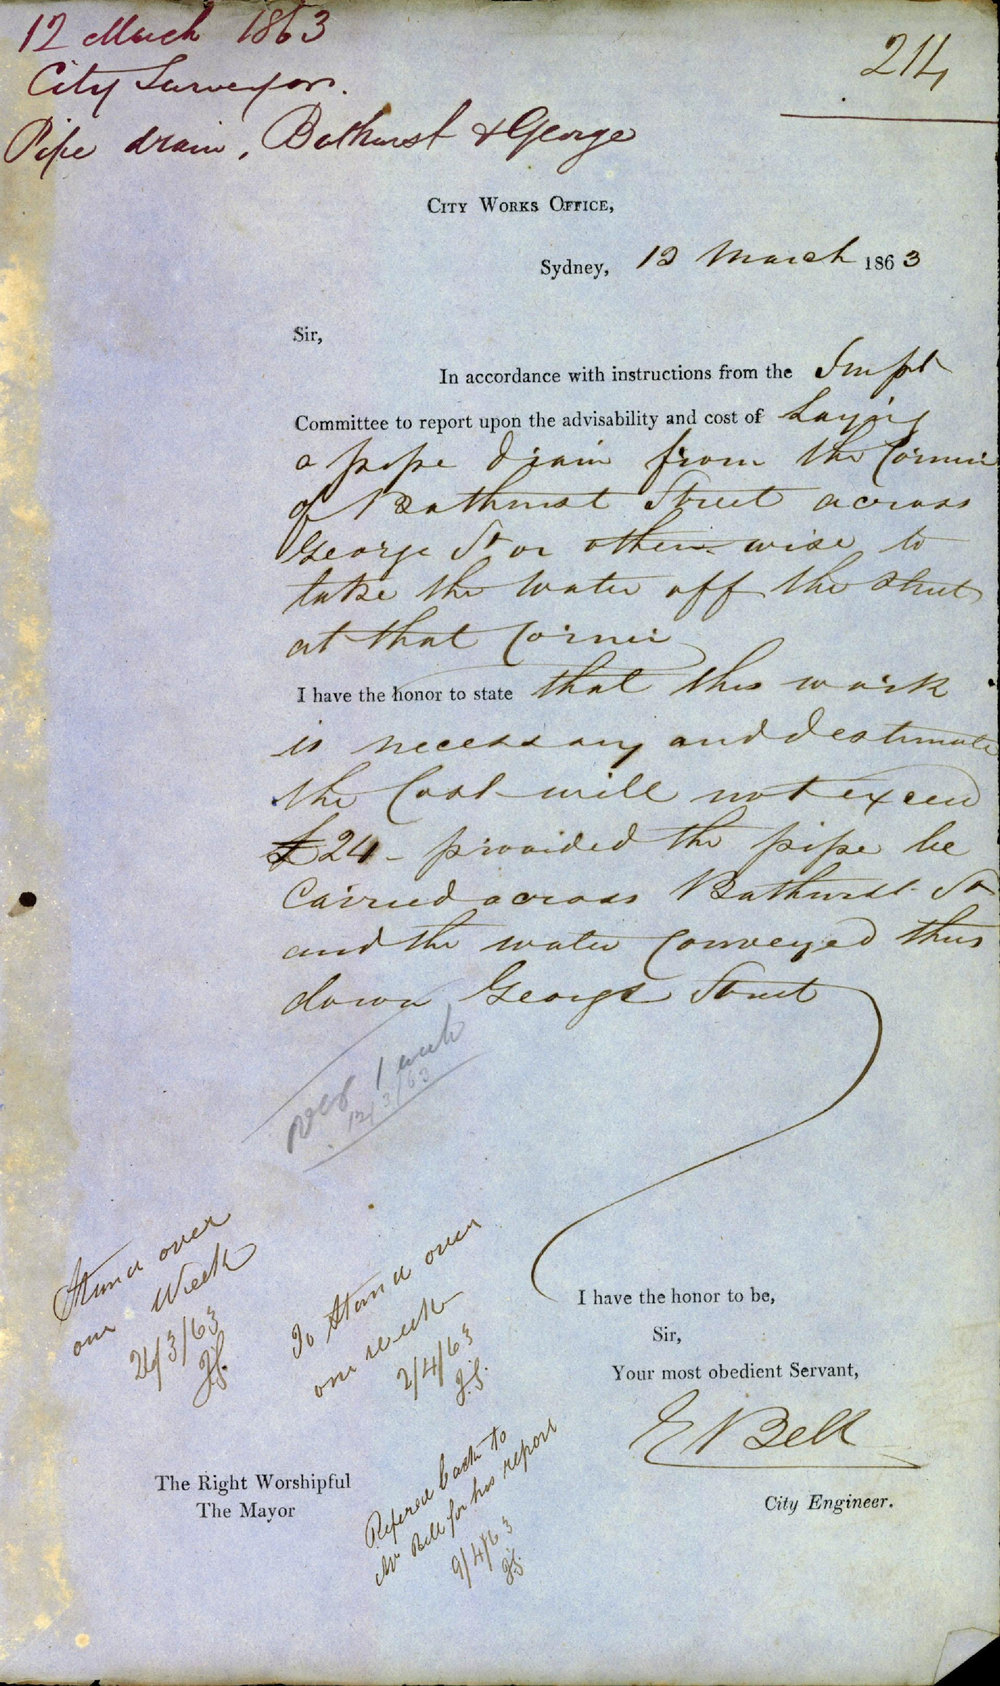 12 March 1863
City Surveyor.
Pipe drain, Bathurst & George
214
City Works Office,
Sydney, 12 March 1863
Sir,
In accordance with instructions from the Impt
Committee to report upon the advisability and cost of Laying
a pipe drain from the Corner
of Bathurst Street across
George St or otherwise to
take the water off the Street
at that Corner
I have the honor to state that this work
is necessary and I estimate
the Cost will not exceed
£24 - provided the pipe be
Carried across Bathurst St
and the water Conveyed thus
down George Street
1 week
12/3/63
Stand over
one Week
26/3/63
J.S.
To Stand over
one week
2/4/63
J.S.
Refered back to
Mr Bell for his report
9/4/63
J.S.
I have the honor to be,
Sir,
Your most obedient Servant,
E Bell
City Engineer.
The Right Worshipful
The Mayor